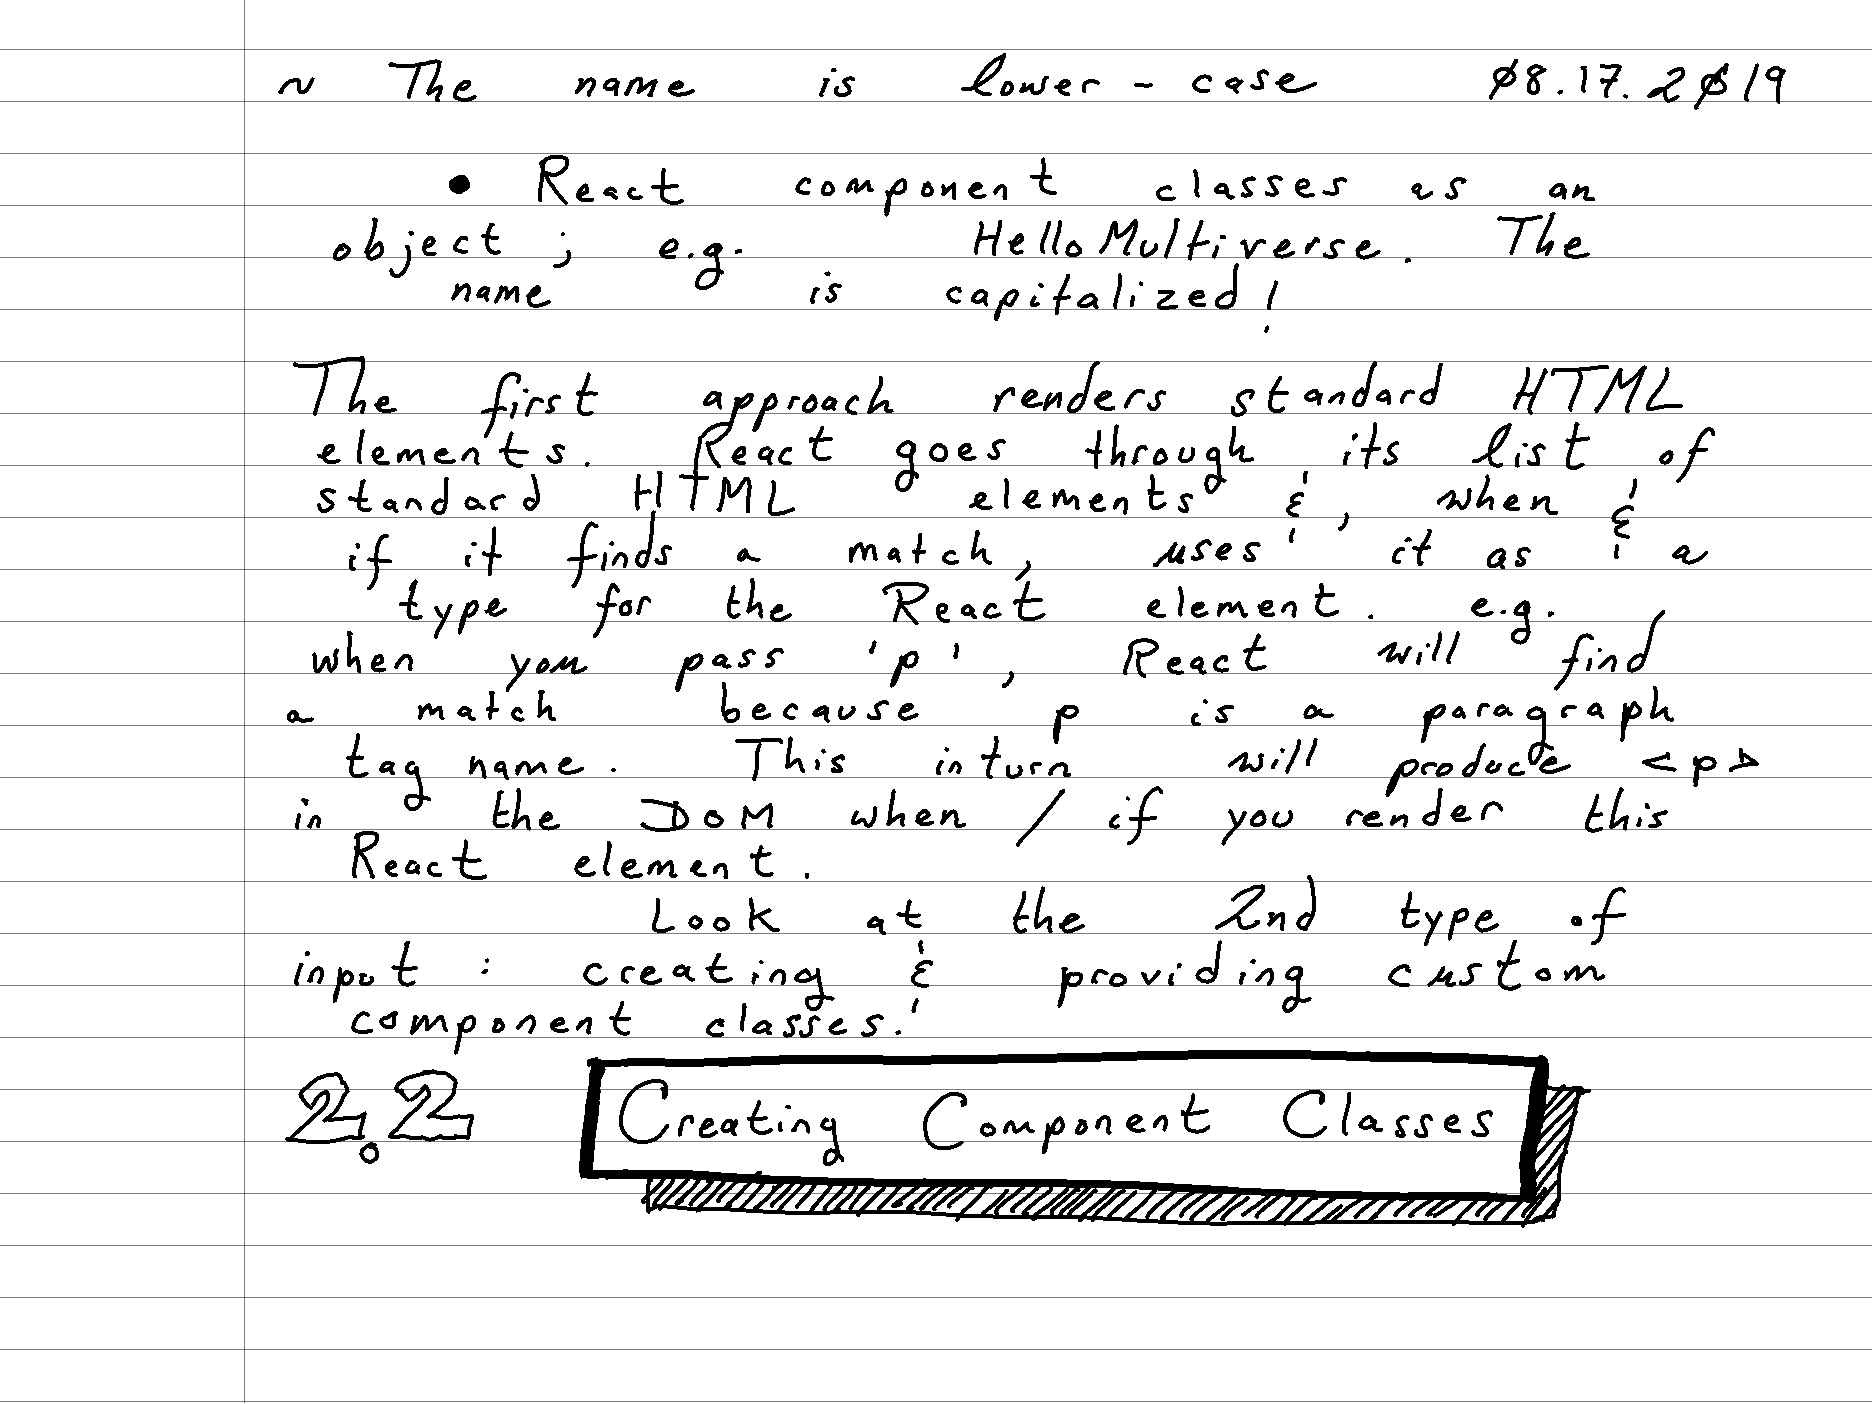 ~ The name is lower - case 08.17.2019
• React component classes as an
object ; e.g. HelloMultiverse. The
name is capitalized!
The first approach renders standard HTML
elements. React goes through its list of
standard HTML elements &, when &
if it finds a match, uses it as a
type for the React element. e.g.
when you pass 'p', React will find
a match because p is a paragraph
tag name. This inturn will produce <p>
in the DOM when / if you render this
React element.
Look at the 2nd type of
input : creating & providing custom
component classes.
2.2 Creating Component Classes